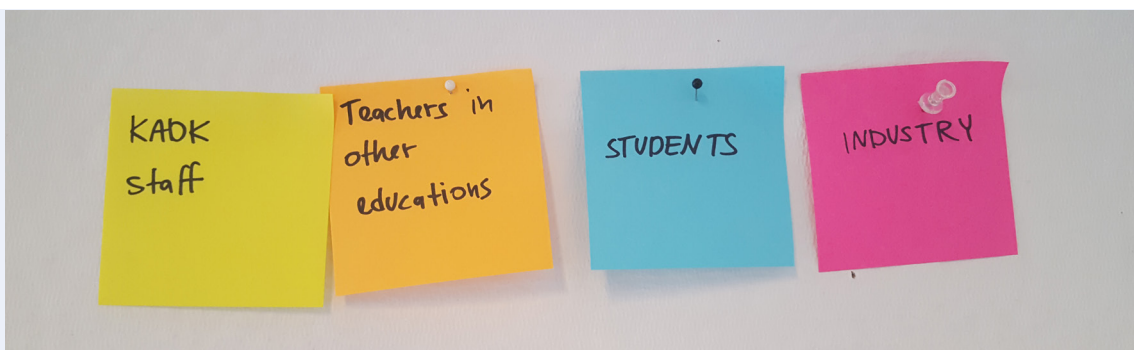 KADK
staff
Teachers in
other
educations
STUDENTS
INDUSTRY